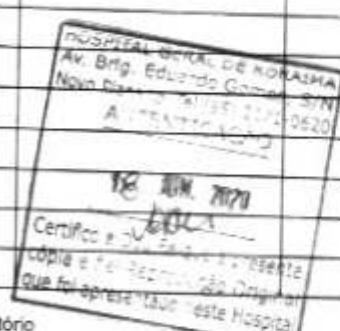 HOSPITAL GERAL DE RORAIMA
Av. Brig. Eduardo Gomes, S/N
Novo 0620
AUTENTICAÇÃO
JUN. 2020
Certifico e presente
cópia e fiel reprodução Original
que foi apresentado neste Hospital
tório